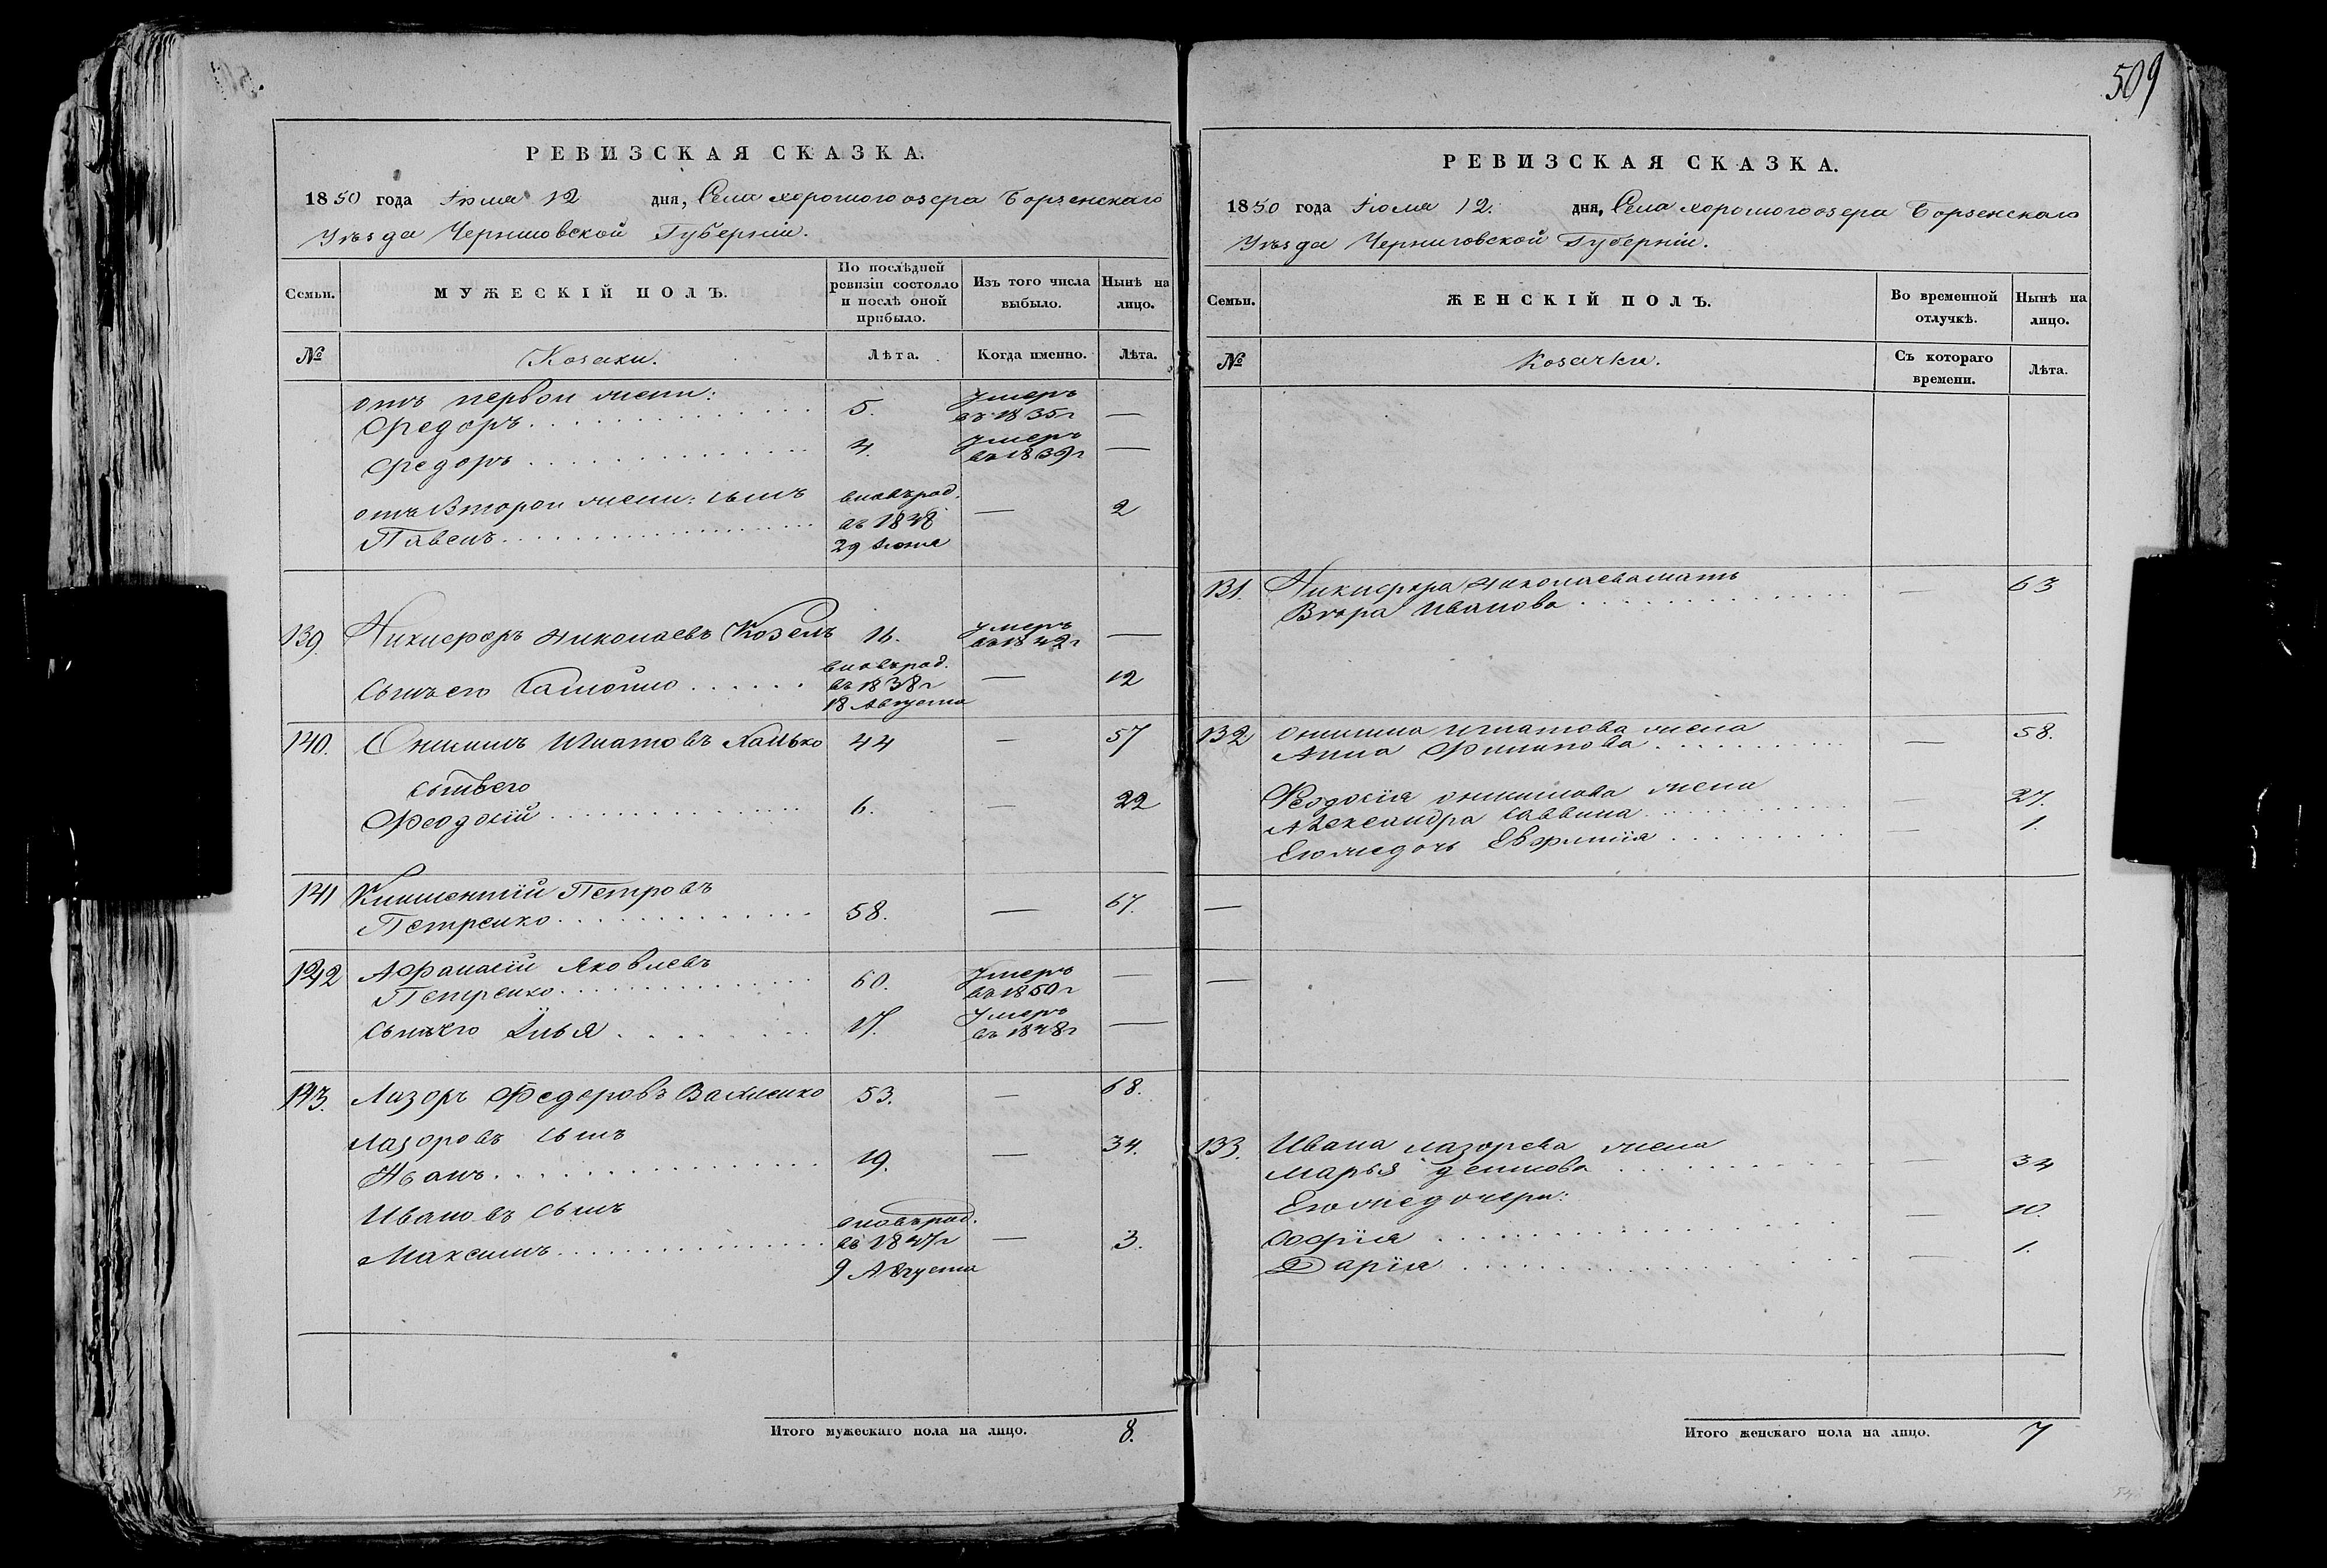 РЕВИЗСКАЯ СКАЗКА.
1850 года Іюля 12 дня, Села Хорошого озера Борзенскаго
Уѣзда Черниговской Губерніи.
Семьи.
МУЖЕСКІЙ ПОЛЪ.
По послѣдней ревизіи состояло и послѣ оной прибыло.
Изъ того числа выбыло.
Нынѣ на лицо.
№
Козаки.
Лѣта.
Когда именно.
Лѣта.
отъ первой жены:
Федоръ 5. Умеръ въ 1835 г —
Федоръ 4. Умеръ въ 1839 г —
отъ Второй жены: сынъ
Павелъ вновьрод. въ 1848 29 Іюня — 2
139. Никифоръ Николаевъ Козелъ 16. Умеръ въ 1842 г —
Сынъ его вновьрод. въ 1838 г 18 Августа — 12
140. Онисимъ Игнатовъ 44 — 57
Сынъ его
Феодосій 6. — 22
141 Климентій Петровъ
Петренко 58. — 67.
142 Афанасій Яковлевъ
Петренко 60. Умеръ въ 1850 г —
Сынъ его Илья 17. Умеръ въ 1848 г —
143. Лазоръ Федоровъ 53. — 68.
Лазоровъ сынъ
Иванъ 19. — 34.
Ивановъ сынъ
Максимъ вновьрод. въ 1847 г 9 Августа — 3.
Итого мужескаго пола на лицо. 8.
509
РЕВИЗСКАЯ СКАЗКА.
1850 года Іюля 12. дня, Села Хорошого озера Борзенскаго
Уѣзда Черниговской Губерніи.
Семьи.
ЖЕНСКІЙ ПОЛЪ.
Во временной отлучкѣ.
Нынѣ на лицо.
№
Козачки.
Съ котораго времени.
Лѣта.
131. Никифора Николаева мать
Вѣра Иванова — 63
132 Онисима Игнатова жена
Анна Филипова — 58.
Феодосія Онисимова жена
Александра Саввина — 27.
Его же дочь — 1.
—
—
133. Ивана Лазорева жена
Марья — 34
Его же дочери:
Софія — 10.
Дарія — 1.
Итого женскаго пола на лицо. 7